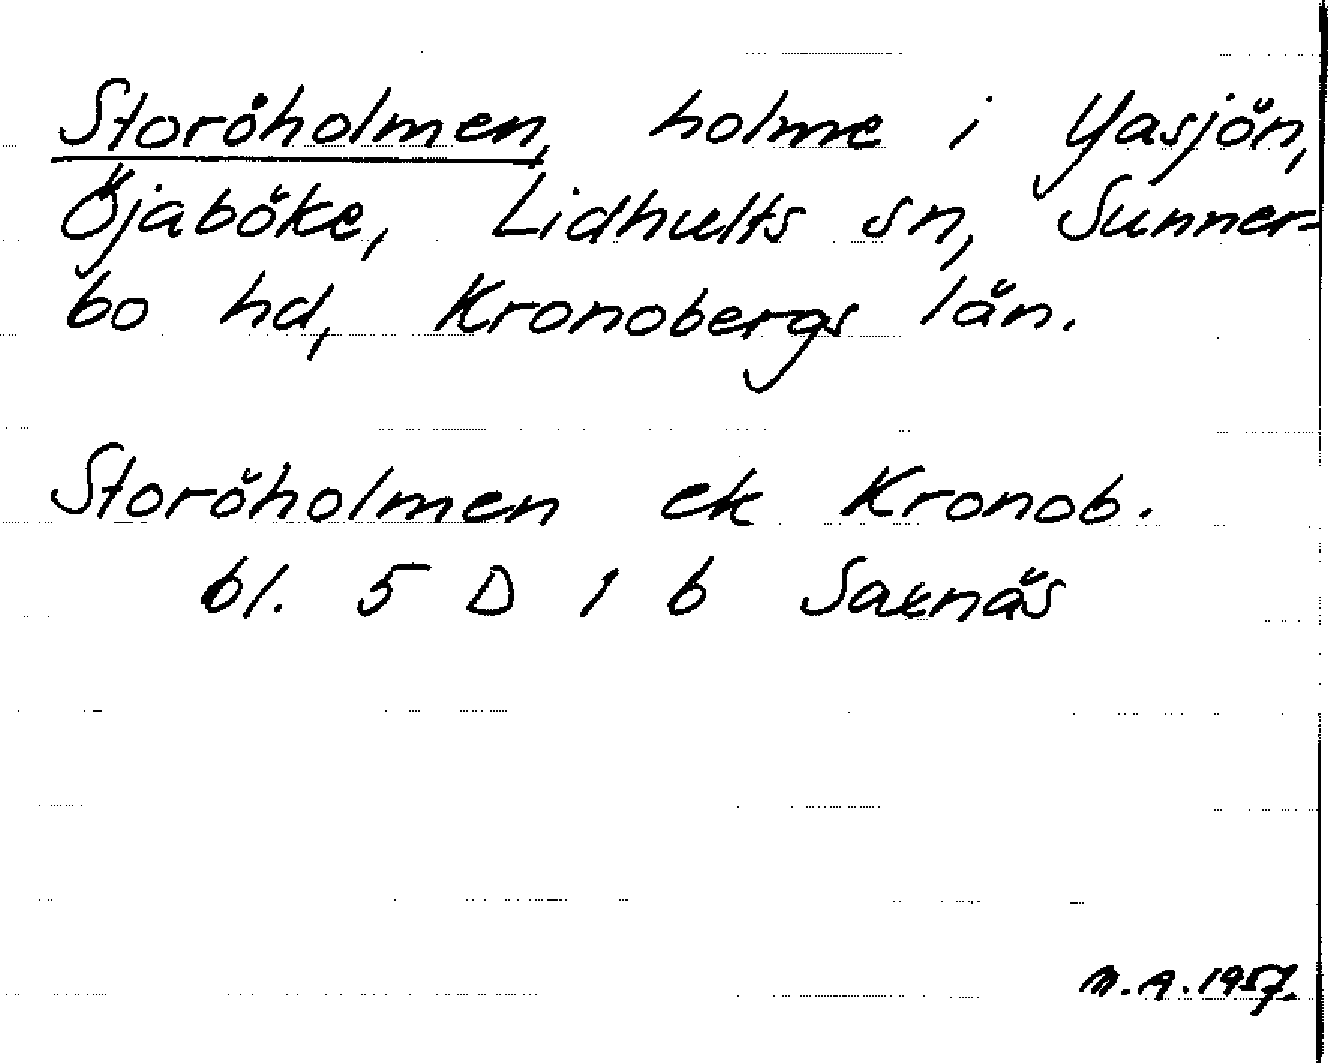 Storöholmen, holme i Yasjön,
Öjaböke, Lidhults sn, Sunner-
bo hd, Kronobergs län.
Storöholmen ek Kronob.
bl. 5 D 1 b Saxnäs
M.A. 1957.